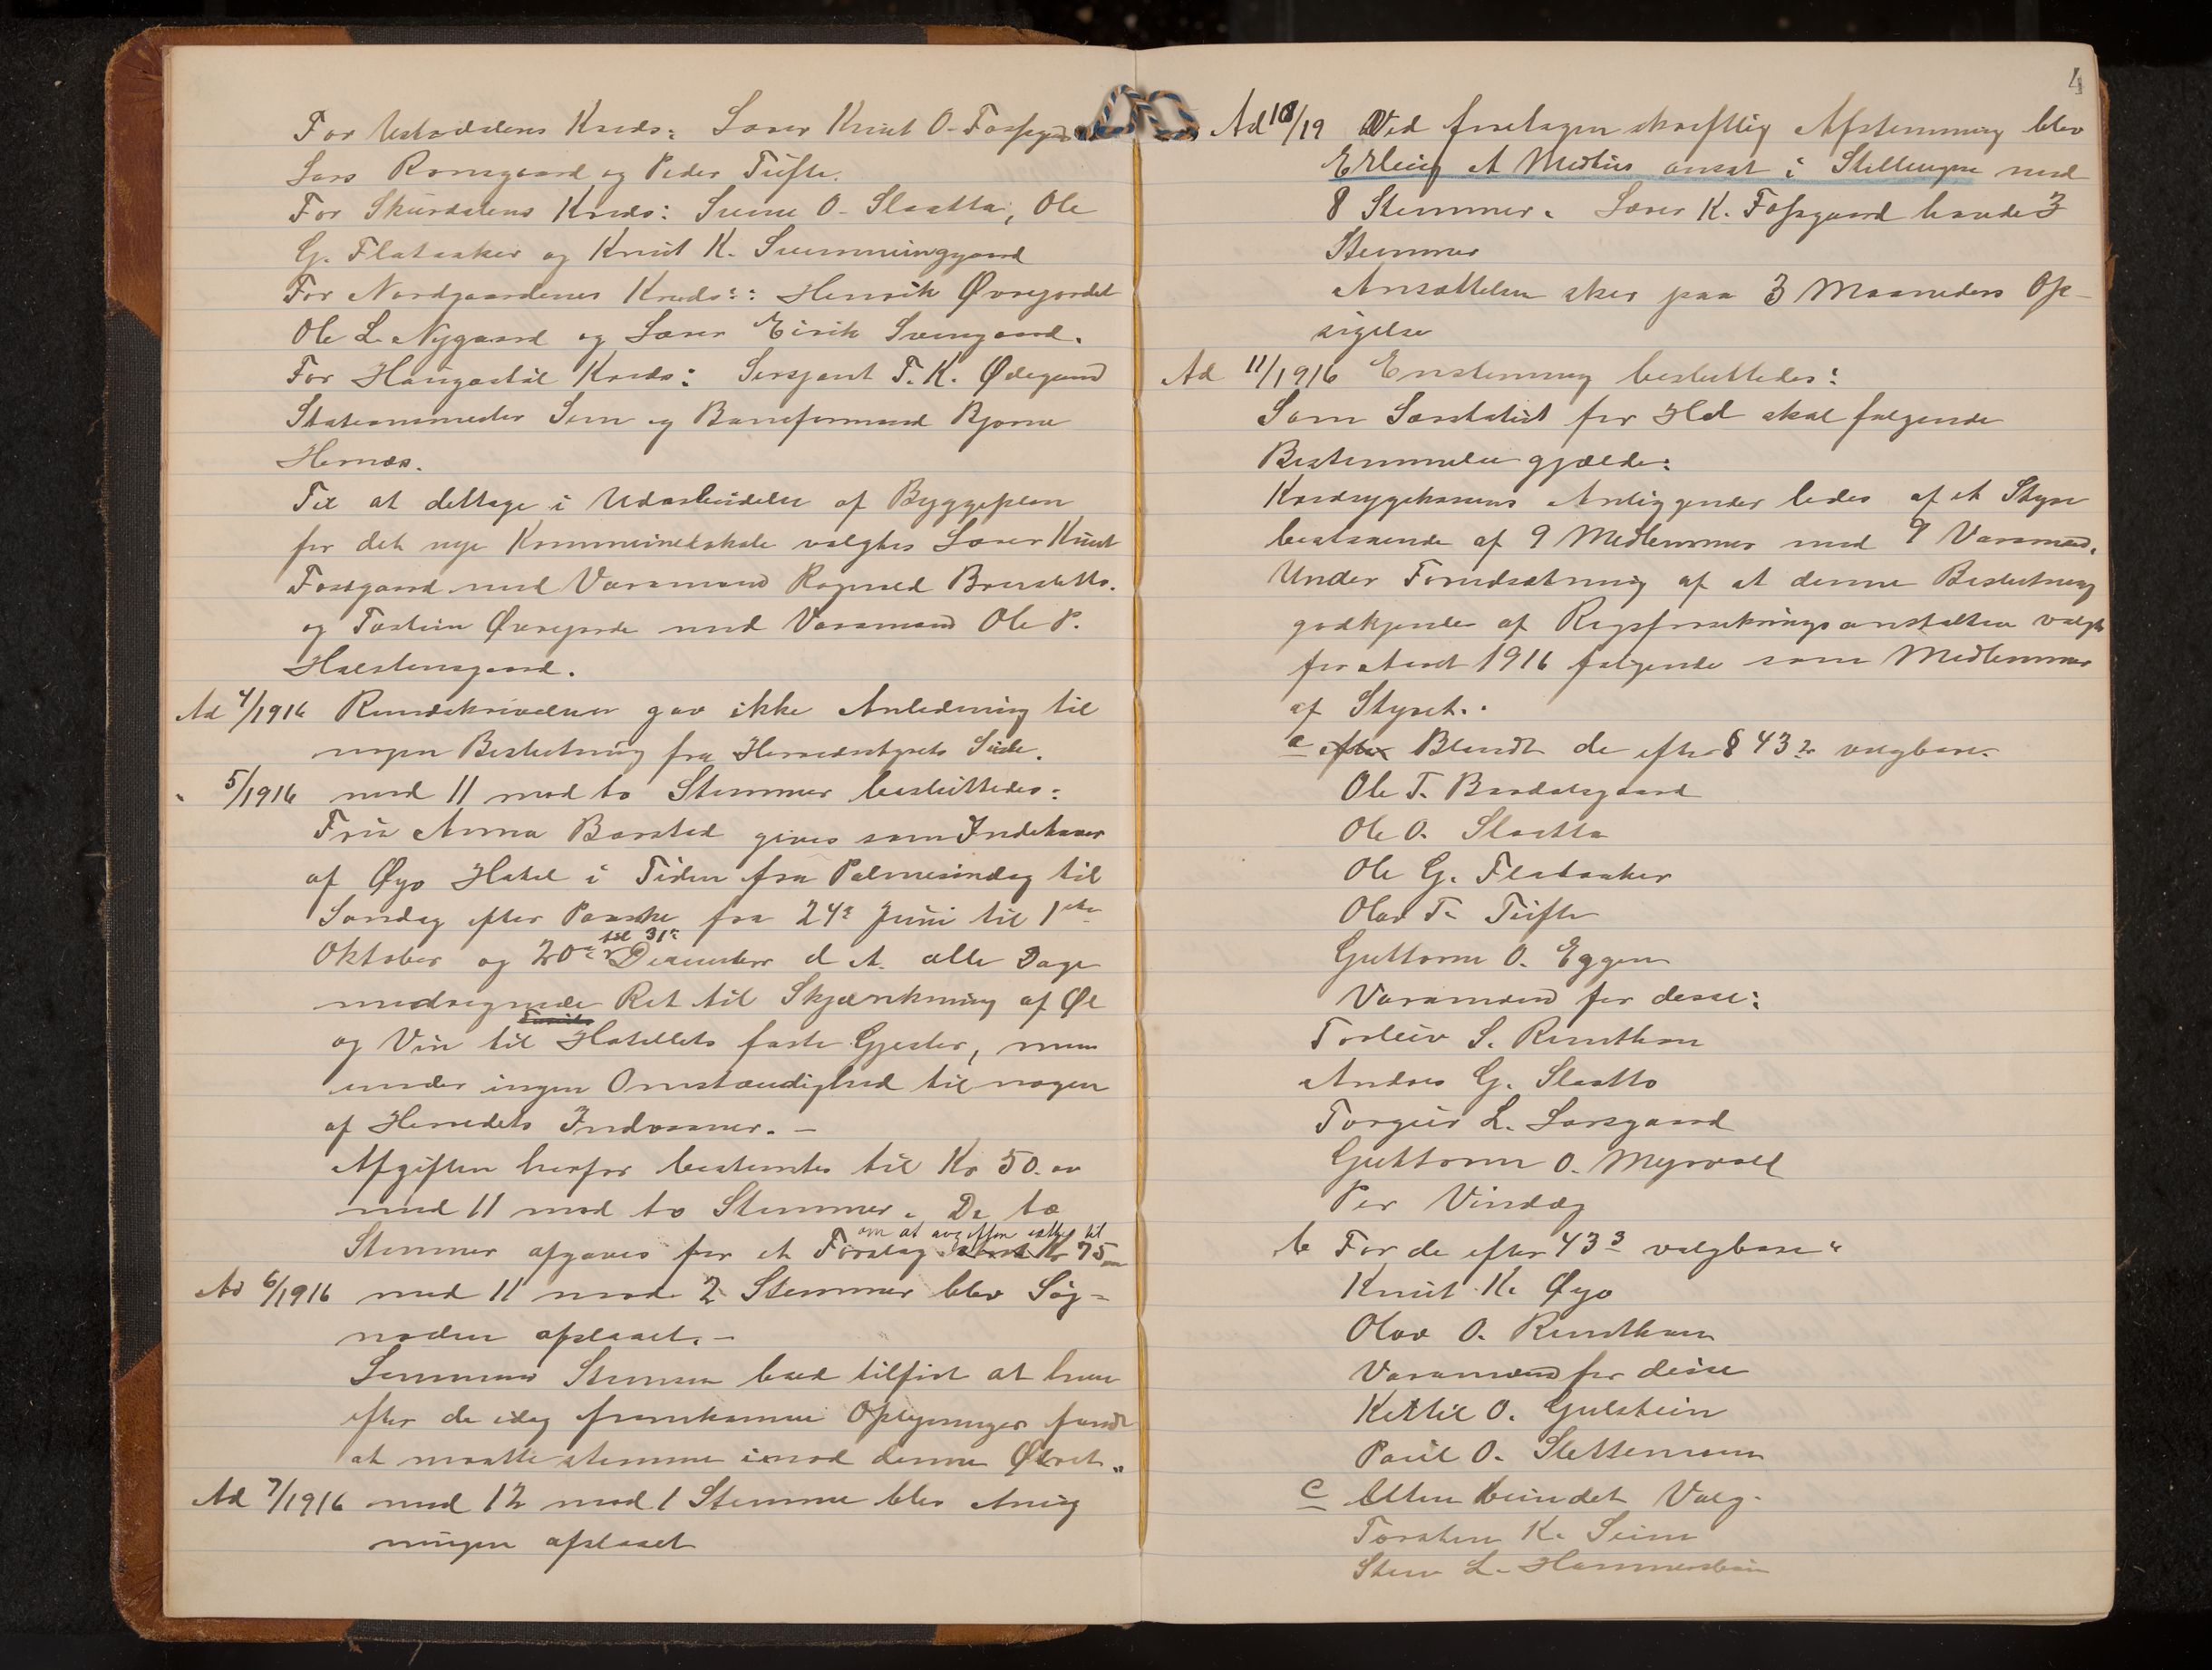 For Ustadalens Kreds: Lærer Knut O. Fossgaard
Lars Ramsgaard og Peder Tufte.
For Skurdalens Kreds: Svene O. Slaatta, Ole
G. Flataaker og Knut K. Svemminggaard
For Nordgaardenes Kreds: Henrik Øvregardet
Ole L. Nygaard og Lærer Eirik Sveingaard.
For Haugastøl Kreds: Sersjant T. K. Ødegaard
Stationsmester Sem og Baneformand Bjarne
Hernæs.
Til at deltage i Udarbeidelse af Byggeplan
for det nye Kommunelokale valgtes Lærer Knut
Fossgaard med Varamand Ragnvald Breistøl
og Tostein Øvregarde med Varamand Ole P.
Halstensgaard.
Ad 4/1916 Rundskrivelsen gav ikke Anledning til
nogen Beslutning fra Herredsstyrets Side.
" 5/1916 med 11 mod to Stemmer besluttedes:
Fru Anna Barstad gives som Indehaver
af Øyo Hotel i Tiden fra Palmesøndag til
Søndag efter Paaske fra 24e Juni til 1ste
til 31e
Oktober og 20de December d. A. alle Dage
medregnede Ret til Skjænkning af Øl
og Vin til Hotellets faste Gjester, men
under ingen Omstændighed til nogen
af Herredets Indvaaner. –
Afgiften herfor bestemtes til Kr 50.00
med 11 mod to Stemmer. De to
om at avgiften sattes til
Stemmer afgaves for et Forslag Kr 75.00
Ad 6/1916 med 11 mod 2 Stemmer blev Søg-
naden afslaaet. –
Stemmen bad tilført at han
efter de idag fremkomne Oplysninger fandt
at maatte stemme imod denne Ølret.
Ad 7/1916 med 12 mod 1 Stemme blev Anvig
ningen afslaaet
4
Ad 18/19 Ved foretagen skriftlig Afstemning blev
Erling A Medhus ansat i Stillingen med
8 Stemmer. Lærer K. Fossgaard havde 3
Stemmer
Ansættelsen sker paa 3 Maaneders Op-
sigelse
Ad 11/1916 Enstemmig besluttedes:
Som Særstatut for Hol skal følgende
Bestemmelse gjælde:
Kredssygekassens Anliggender ledes af et Styre
bestaaende af 9 Medlemmer med 9 Varamænd.
Under Forudsætning af at denne Beslutning
godkjendes af Rigsforsikringsanstalten valgtes
for Aaret 1916 følgende som Medlemmer
af Styret.
a efter Blandt de efter § 43 2 valgbare.
Ole T. Bardalsgaard
Ole O. Slaatta
Ole G. Flataaker
Olav T. Tufte
Guttorm O. Eggen
Varamænd for disse:
Torleiv S. Rundhaug
Andres G. Slaatto
Torgeir L. Larsgaard
Guttorm O. Myrvold
Per Vindæg
b For de efter 43 3 valgbare.
Knut K. Øyo
Olav O. Rundhaug
Varamænd for disse
Kittil O. Gulstein
Paul O. Slettemoen
c Uten bundet Valg.
Torsten K. Seim
Sten L. Hammersbøen